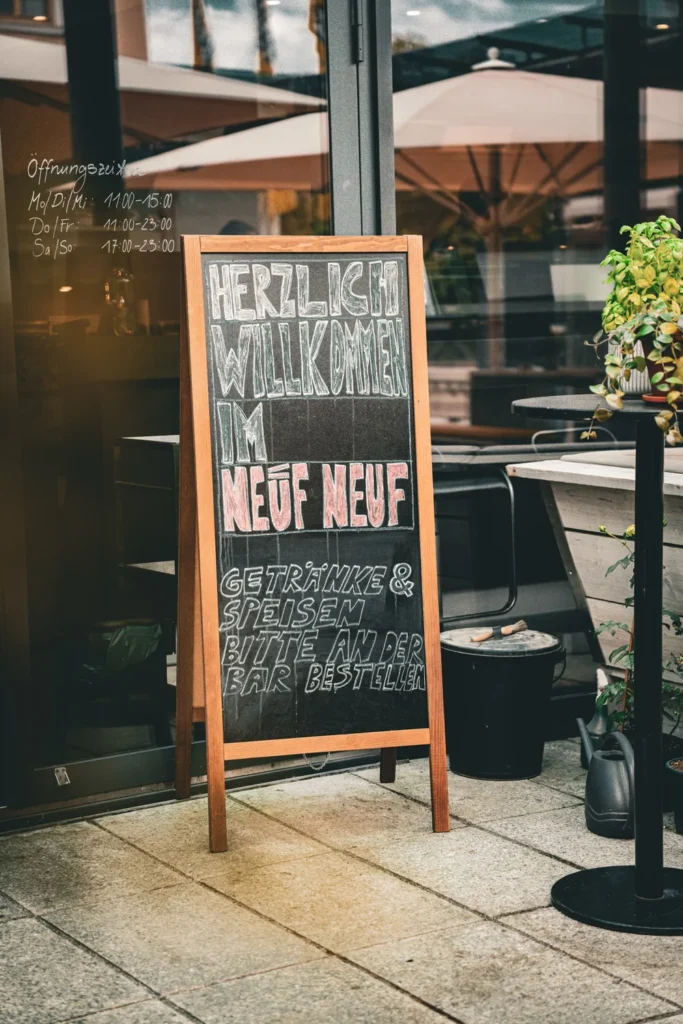 Öffnungszeiten
Mo/Di/Mi: 11:00-15:00
Do/Fr: 11:00-23:00
Sa/So: 17:00-23:00
HERZLICH
WILLKOMMEN
IM
NEUF NEUF
GETRÄNKE &
SPEISEN
BITTE AN DER
BAR BESTELLEN